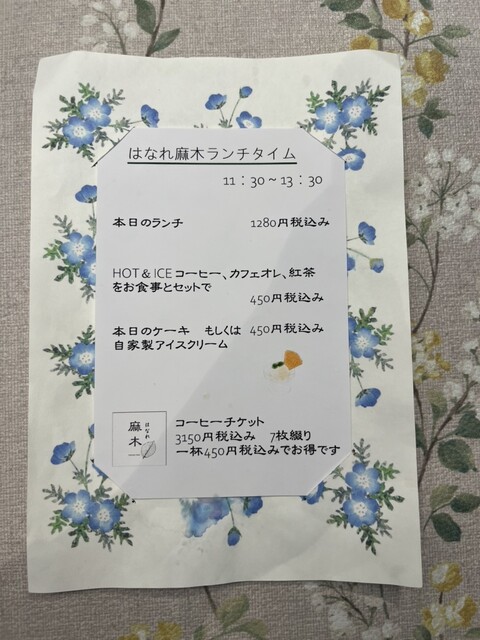 はなれ麻木ランチタイム
11：30～13：30
本日のランチ 1280円税込み
HOT & ICEコーヒー、カフェオレ、紅茶
をお食事とセットで
450円税込み
本日のケーキ もしくは 450円税込み
自家製アイスクリーム
はなれ
麻木
コーヒーチケット
3150円税込み 7枚綴り
一杯450円税込みでお得です